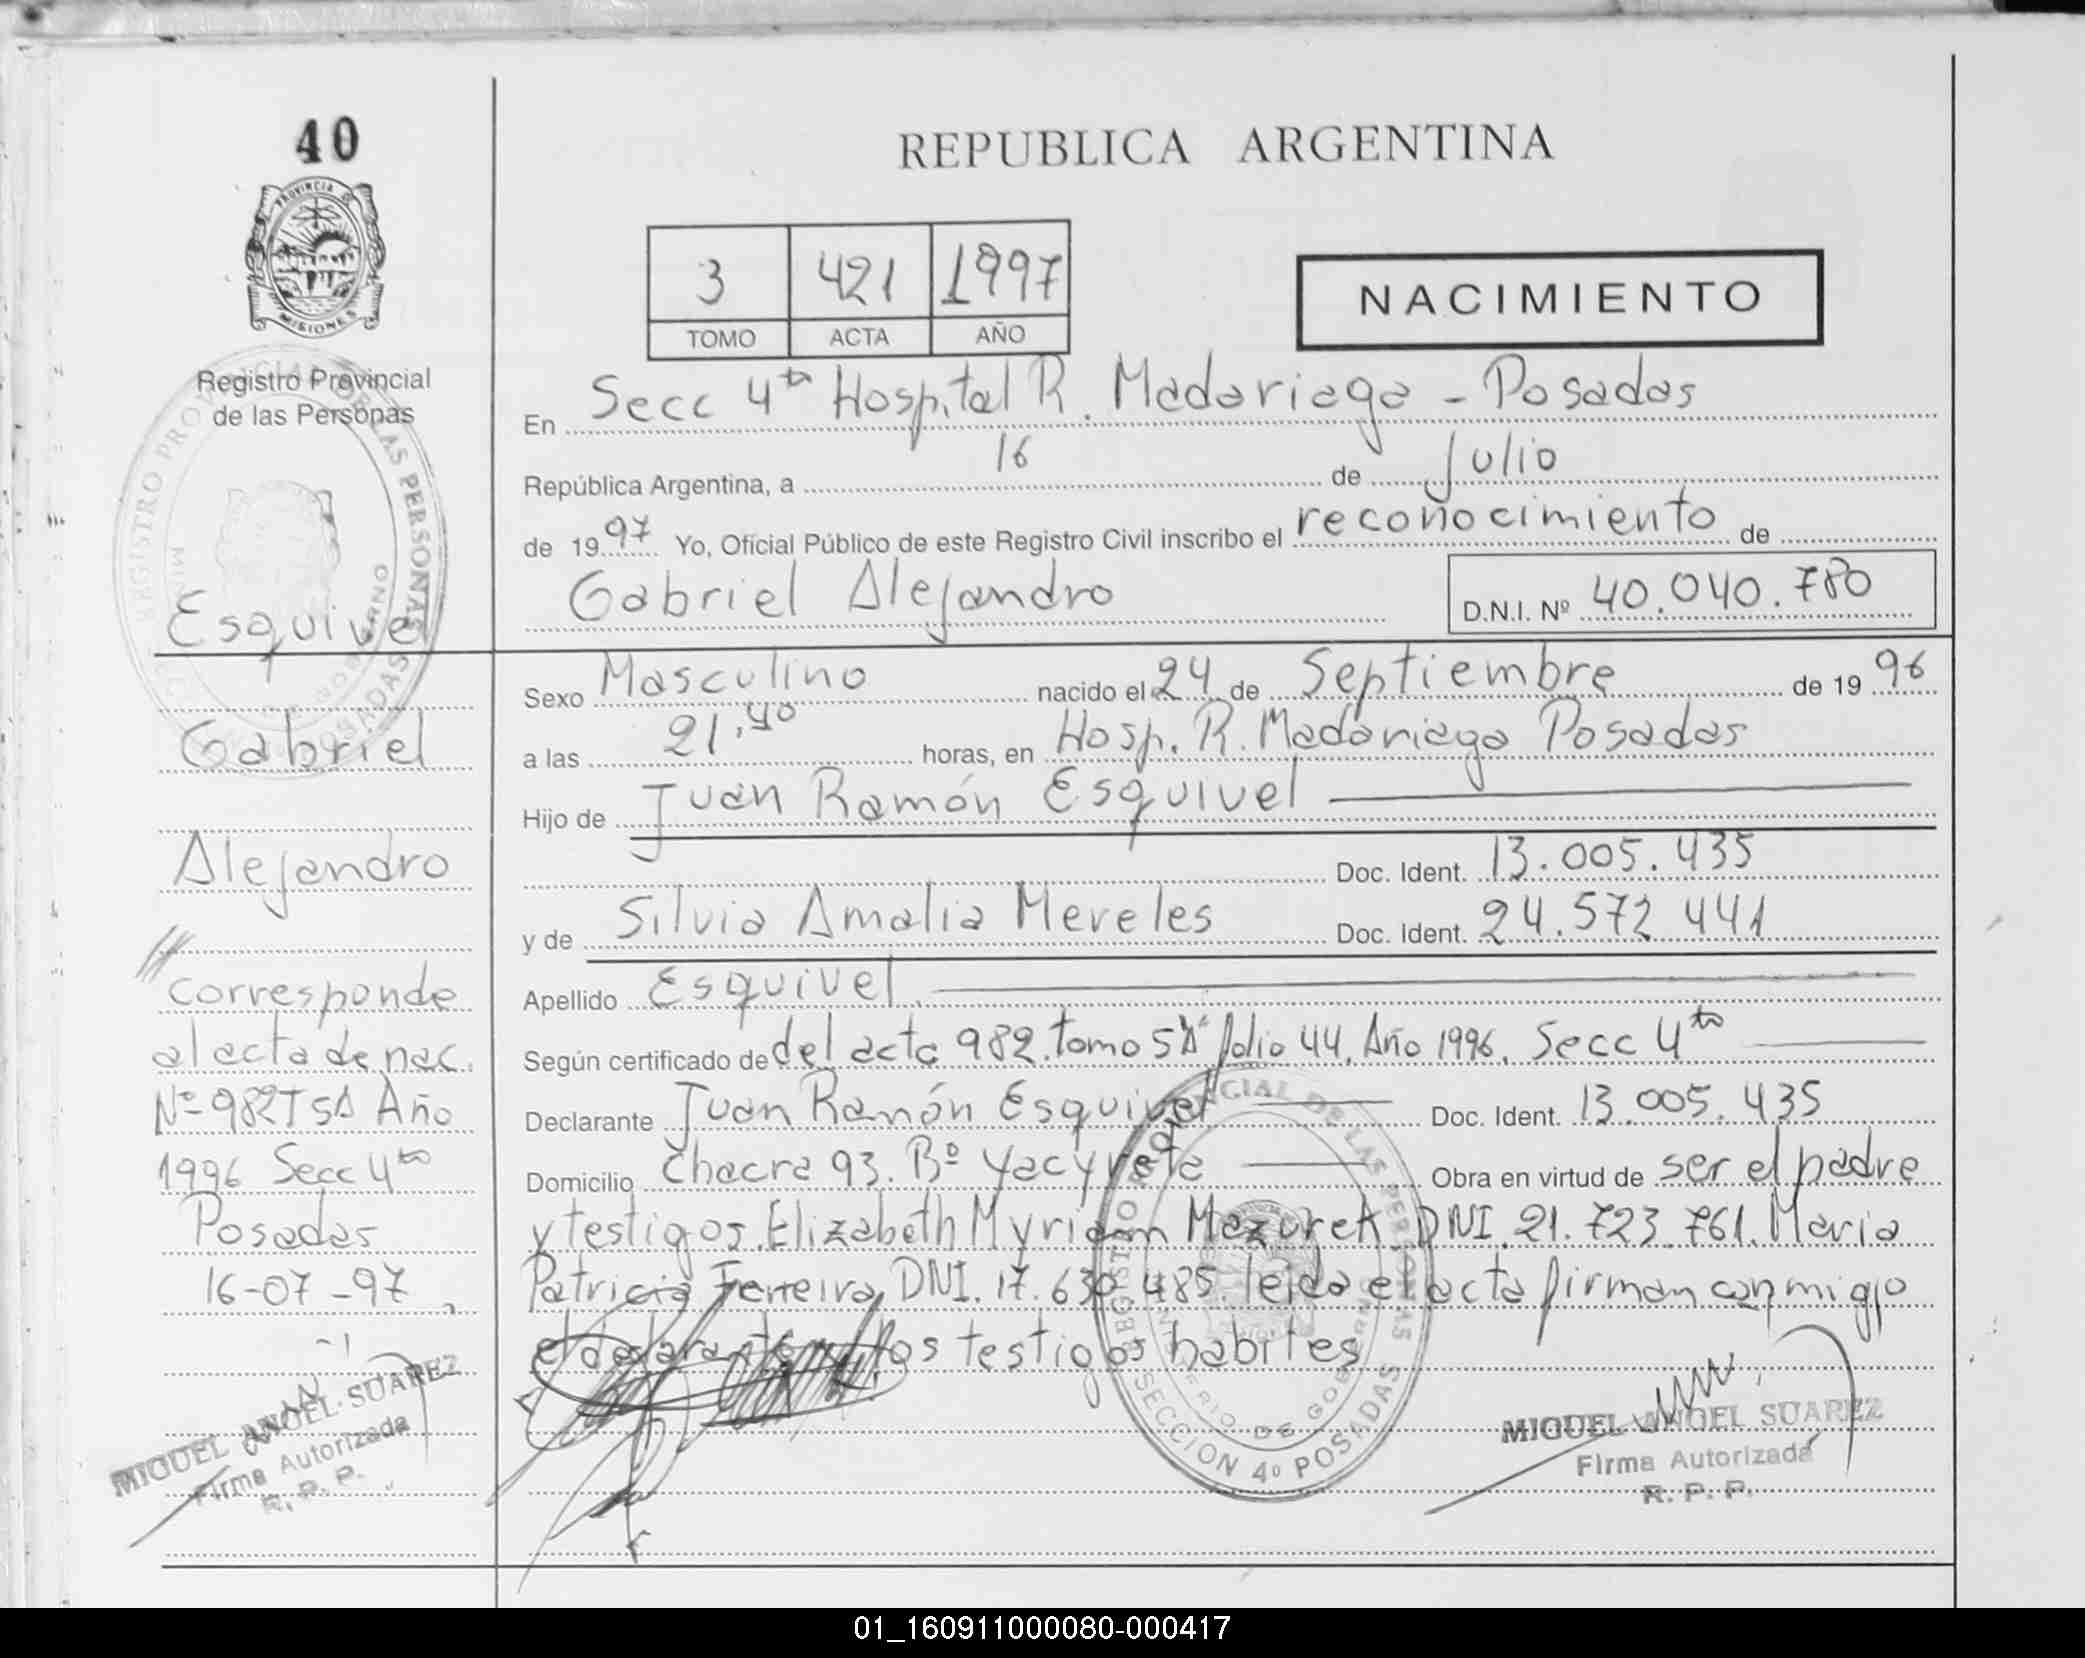 40
REPUBLICA ARGENTINA
PROVINCIA DE
MISIONES
3 421 1997
TOMO ACTA AÑO
NACIMIENTO
Registro Provincial
de las Personas
En Secc 4ta Hospital R. Madariaga - Posadas
República Argentina, a 16 de Julio
de 1997 Yo, Oficial Público de este Registro Civil inscribo el reconocimiento de
Gabriel Alejandro D.N.I. Nº 40.040.780
Esquivel
Gabriel
Alejandro
corresponde
al acta de nac.
Nº 982 T 5A Año
1996 Secc 4ta
Posadas
16-07-97
MIGUEL ANGEL SUAREZ
Firma Autorizada
R. P. P.
Sexo Masculino nacido el 24 de Septiembre de 1996
a las 21,40 horas, en Hosp. R. Madariaga Posadas
Hijo de Juan Ramón Esquivel
Doc. Ident. 13.005.435
y de Silvia Amalia Mereles Doc. Ident. 24.572.441
Apellido Esquivel
Según certificado de del acta 982. tomo 5"A" folio 44. Año 1996. Secc 4ta
Declarante Juan Ramón Esquivel Doc. Ident. 13.005.435
Domicilio Chacra 93. Bº Yacyreta Obra en virtud de ser el padre
y testigos. Elizabeth Myriam Mazurek DNI. 21.723.761. Maria
Patricia Ferreira DNI. 17.630.485. leida el acta firman conmigo
el declarante y los testigos habiles
REGISTRO PROVINCIAL DE LAS PERSONAS
MINISTERIO DE GOBIERNO
SECCION 4º POSADAS
MIGUEL ANGEL SUAREZ
Firma Autorizada
R. P. P.
01_160911000080-000417